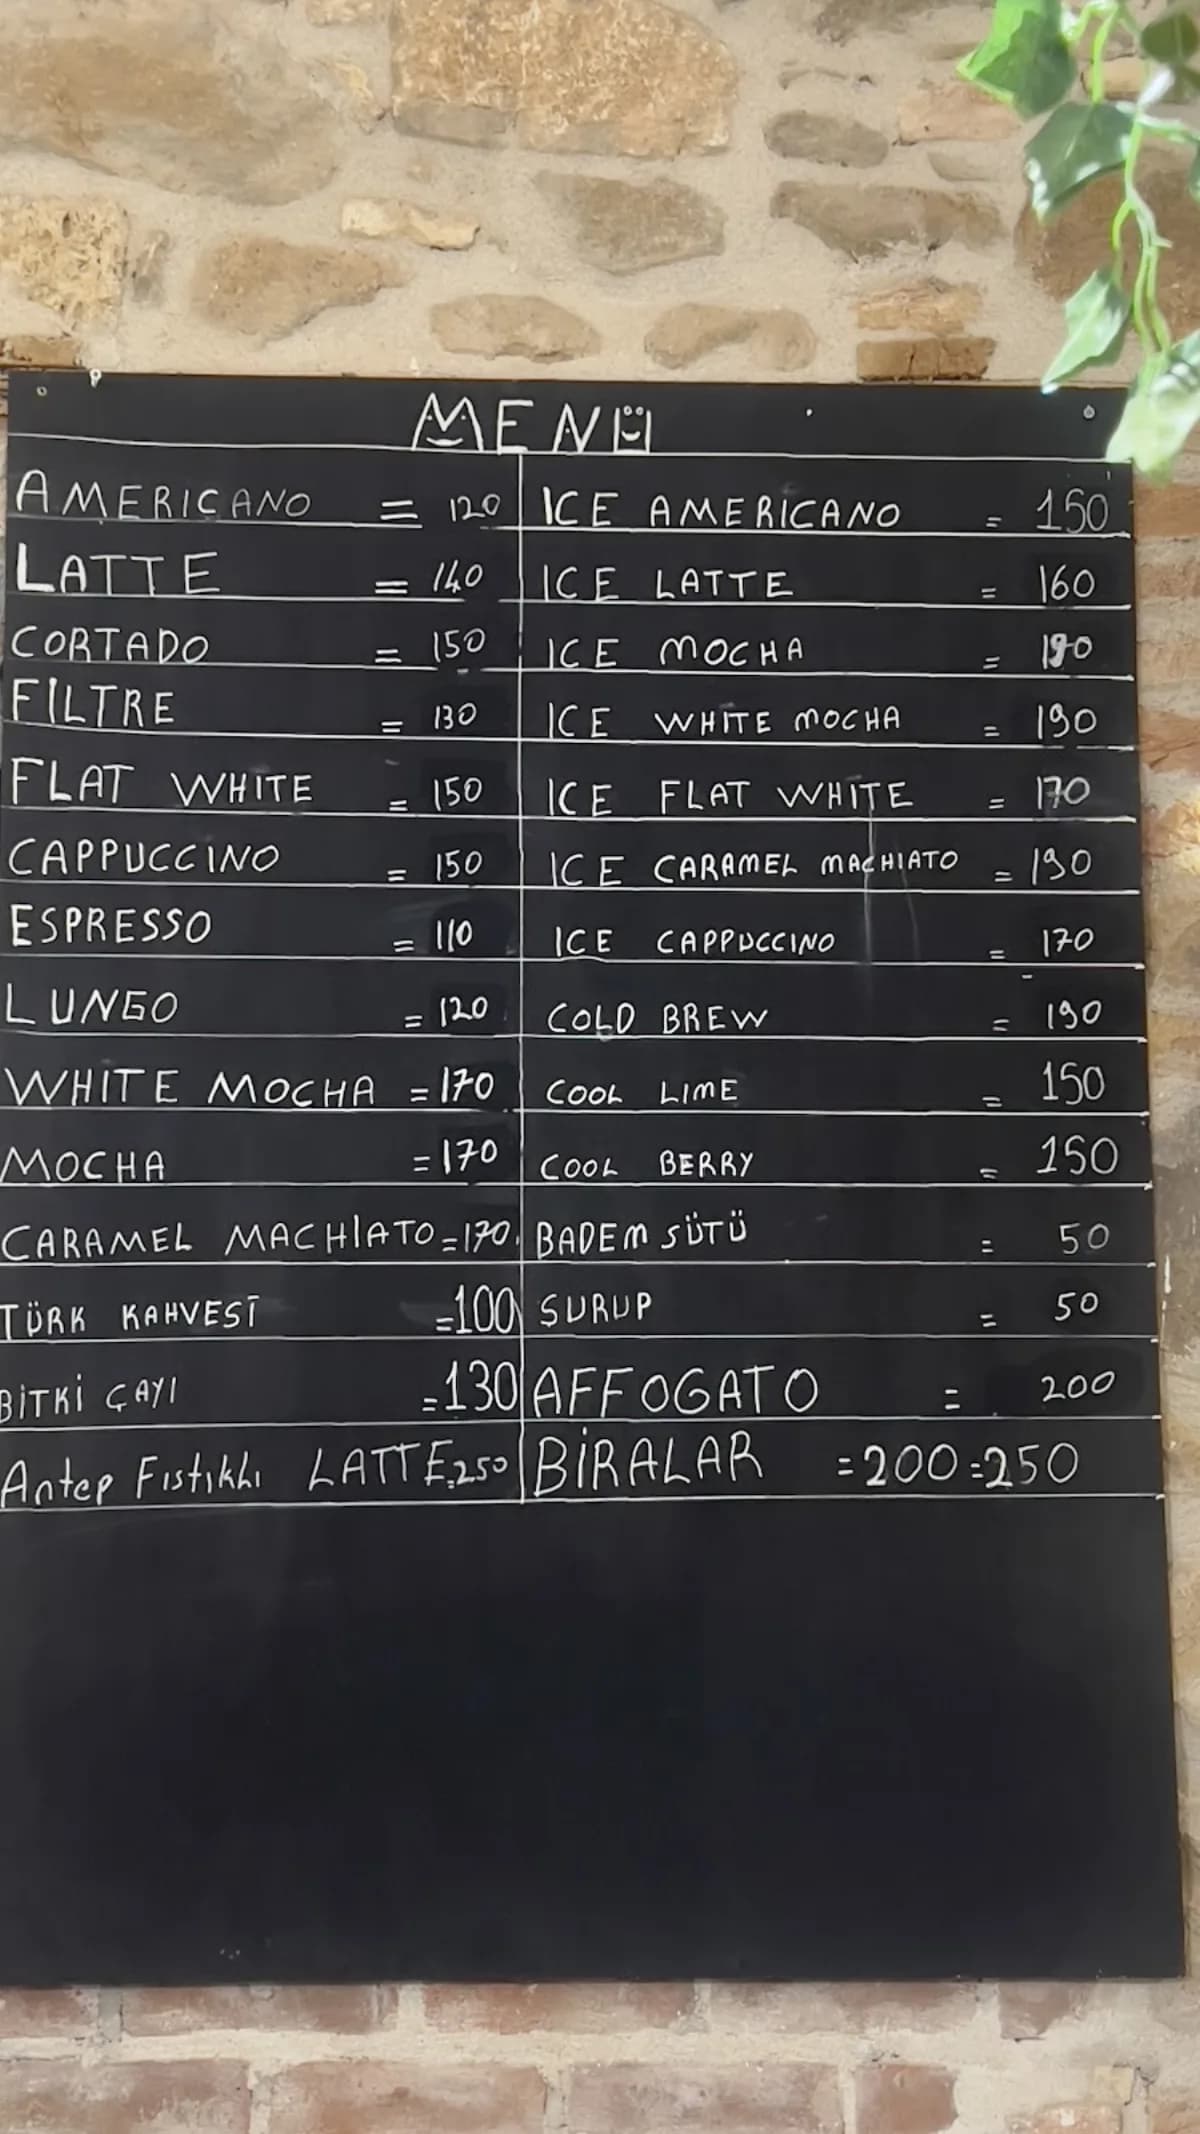 MENÜ
AMERICANO = 120
LATTE = 140
CORTADO = 150
FILTRE = 130
FLAT WHITE = 150
CAPPUCCINO = 150
ESPRESSO = 110
LUNGO = 120
WHITE MOCHA = 170
MOCHA = 170
CARAMEL MACHIATO = 170
TÜRK KAHVESİ = 100
BİTKİ ÇAYI = 130
Antep Fıstıklı LATTE = 250
ICE AMERICANO = 150
ICE LATTE = 160
ICE MOCHA = 190
ICE WHITE MOCHA = 190
ICE FLAT WHITE = 170
ICE CARAMEL MACHIATO = 190
ICE CAPPUCCINO = 170
COLD BREW = 190
COOL LIME = 150
COOL BERRY = 150
BADEM SÜTÜ = 50
SURUP = 50
AFFOGATO = 200
BİRALAR = 200 = 250